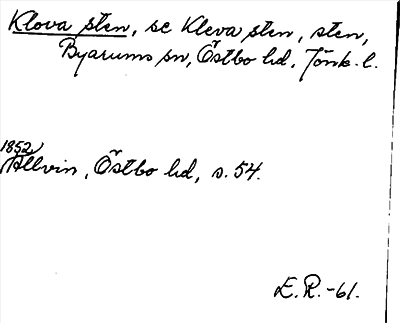 Klova sten, se Kleva sten, sten,
Byarums sn, Östbo hd, Jönk. l.
1852
Allvin, Östbo hd, s. 54.
E. R. -61.